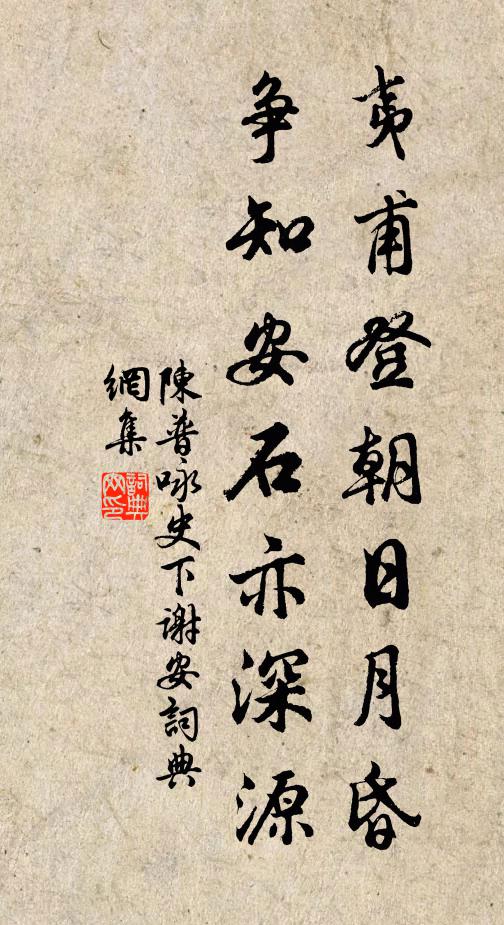 夷甫登朝日月昏
爭知安石亦深源
陳普咏史下謝安詞典
網集
詞典
网印